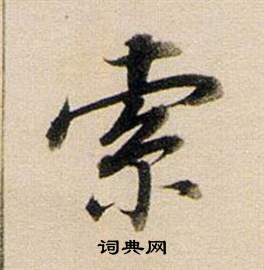 索
词典网